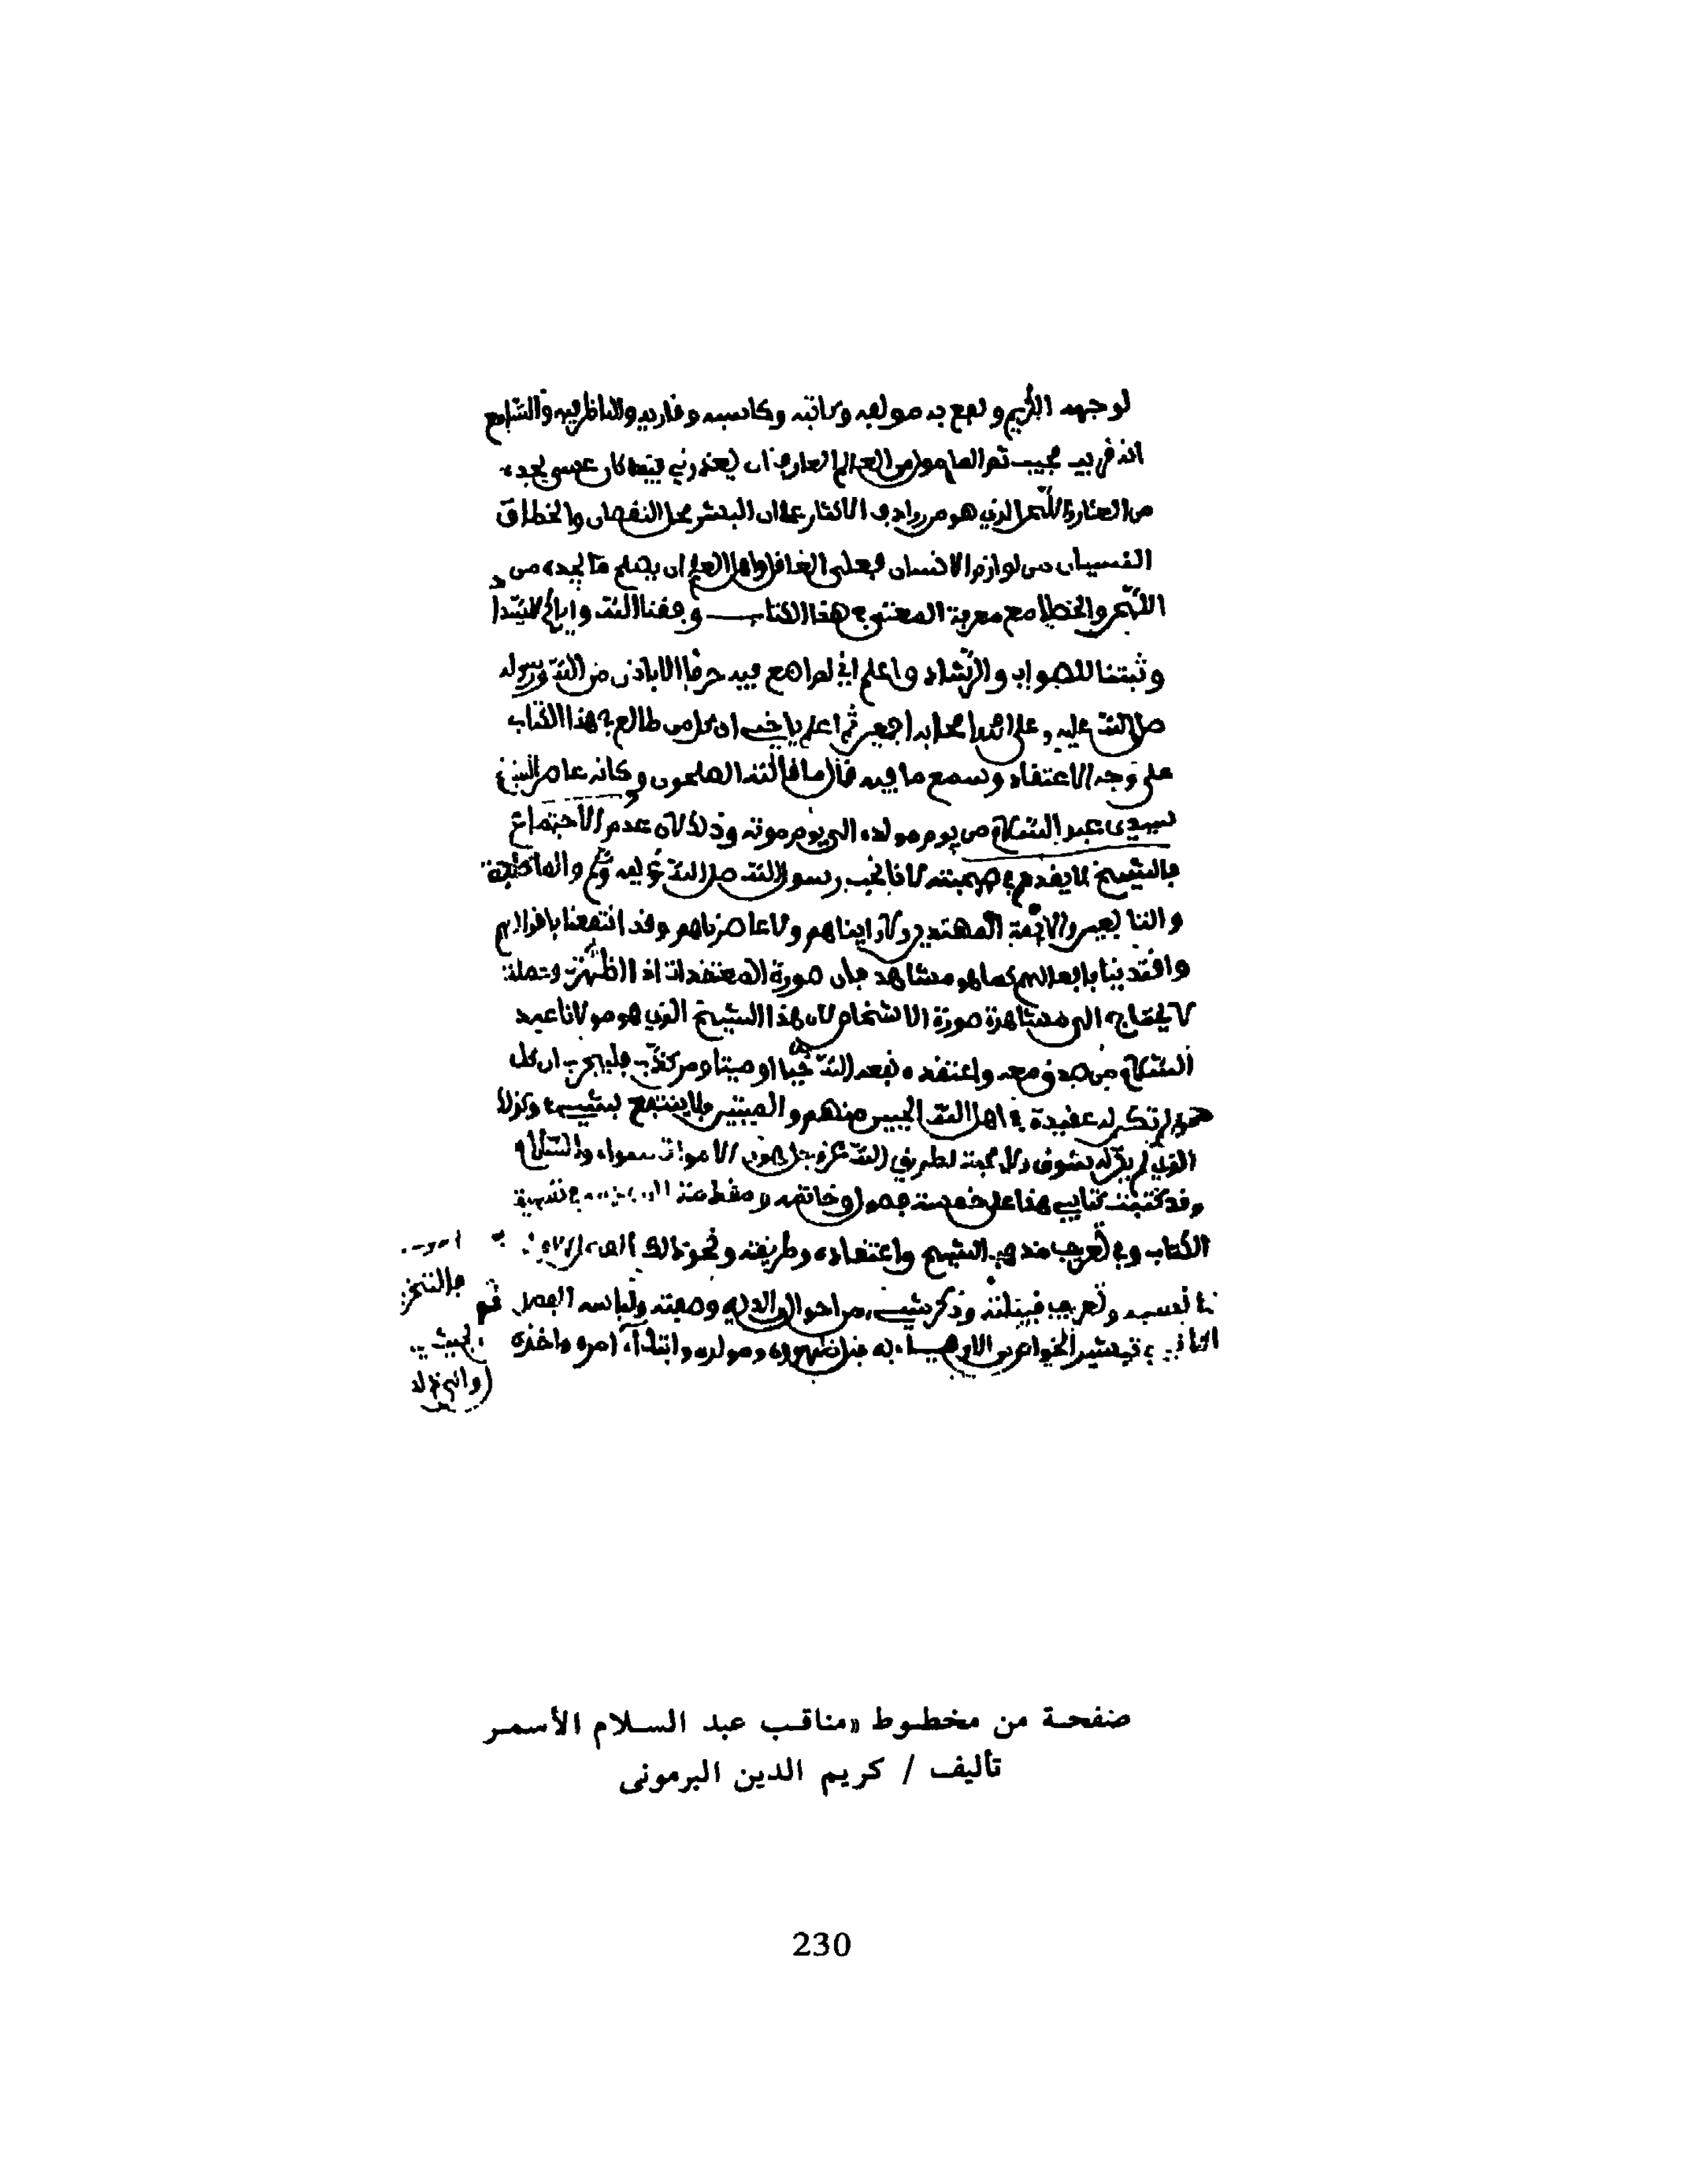 لوجهه الكريم ونفع به مولفه وكاتبه وكاسبه وقاريه والناظر فيه والسامع
انه قريب مجيب ثم المامول من العالم العارف ان يعذرني فيما كان عسى يجده
من العثار واللحن الذي هو من روادف الاكثار على ان البشر محل النقصان والخطا
النسيان من لوازم الانسان فعلى الغافل واهل العلم ان يصلح ما يجده من
اللحن والخطا مع معرفة المعنى في هذا الكتاب وفقنا الله واياك
وثبتنا للصواب والرشاد واعلم اني لم اضع فيه حرفا الا باذن من الله ورسوله
صلى الله عليه وعلى اله واصحابه اجمعين ثم اعلم يا اخي ان كل من طالع في هذا الكتاب
على وجه الاعتقاد وسمع ما فيه قال ما قاله الصالحون وكانه عاصر الشيخ
سيدي عبد السلام من يوم مولده الى يوم موته وذلك لان عدم الاجتماع
بالشيخ لا يقدح في صحبته لانا نحب رسول الله صلى الله عليه وسلم والصحابة
والتابعين والائمة المهتدين ولا رايناهم ولا عاصرناهم وقد انتفعنا باقوالهم
واقتدينا بافعالهم كما هو مشاهد فان صورة المعتقدات اذا ظهرت وحصلت
لا يحتاج الى مشاهدة صورة الاشخاص لان هذا الشيخ الذي هو مولانا عبد
السلام من صدق معه واعتقده نفعه الله حيا او ميتا ومن كذب فليجرب ان كل
من لم تكن له عقيدة في اهل الله الحيين منهم والميتين فلا ينتفع بشيء وكذلك
الذي لم يكن له تشوف ولا محبة لطريق الله عز وجل فهو والاموات سواء والسلام
وقد كتبت كتابي هذا على خمسة فصول وخاتمة ومقدمة في تسمية
الكتاب وفي تعريف مذهب الشيخ واعتقاده وطريقته ونحو ذلك الفصل الاول في
نسبه وتعريف قبيلته وذكر شيء من احوال والديه وصفته ولباسه الفصل
الثاني في تبشير الخواص من الاولياء به قبل ظهوره ومولده وابتداء امره واخذه
صفحة من مخطوط «مناقب عبد السلام الأسمر
تأليف / كريم الدين البرموني
230